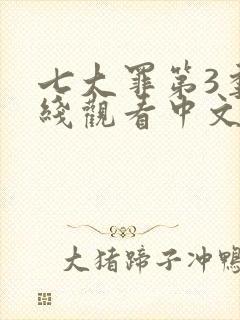 七大罪第3
綫觀看中文
大猪蹄子冲鴨